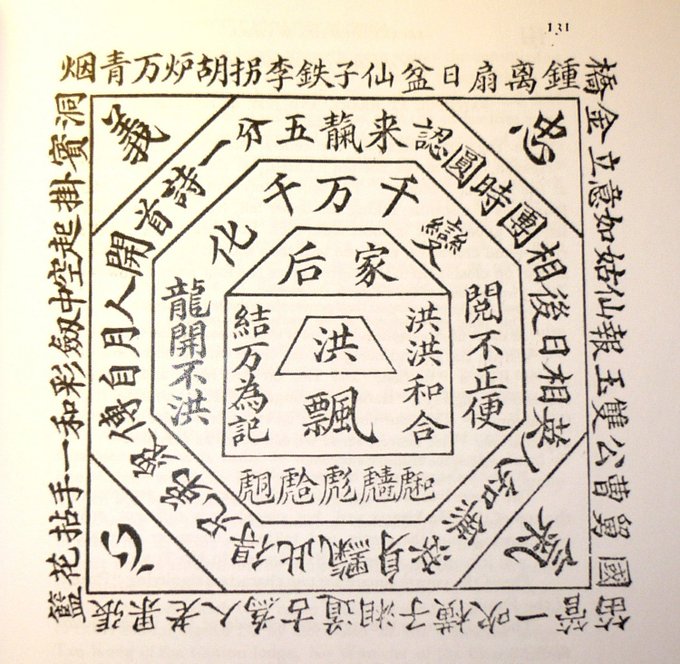 131
鍾离扇日盆仙子鉄李拐胡炉万青烟
國舅曹公雙玉報仙姑如意立金橋
洞賓掛起空中劔彩和一手拈花籃
張果老人為古道湘子橫吹一管笛
義
詩一分五来認圓時團
相後日相英人知無
身飄此得兄弟
傳自月人開首
化千万千變
后家
龍開不洪
閱不正便
結万為記
洪洪和合
洪
飄
彪